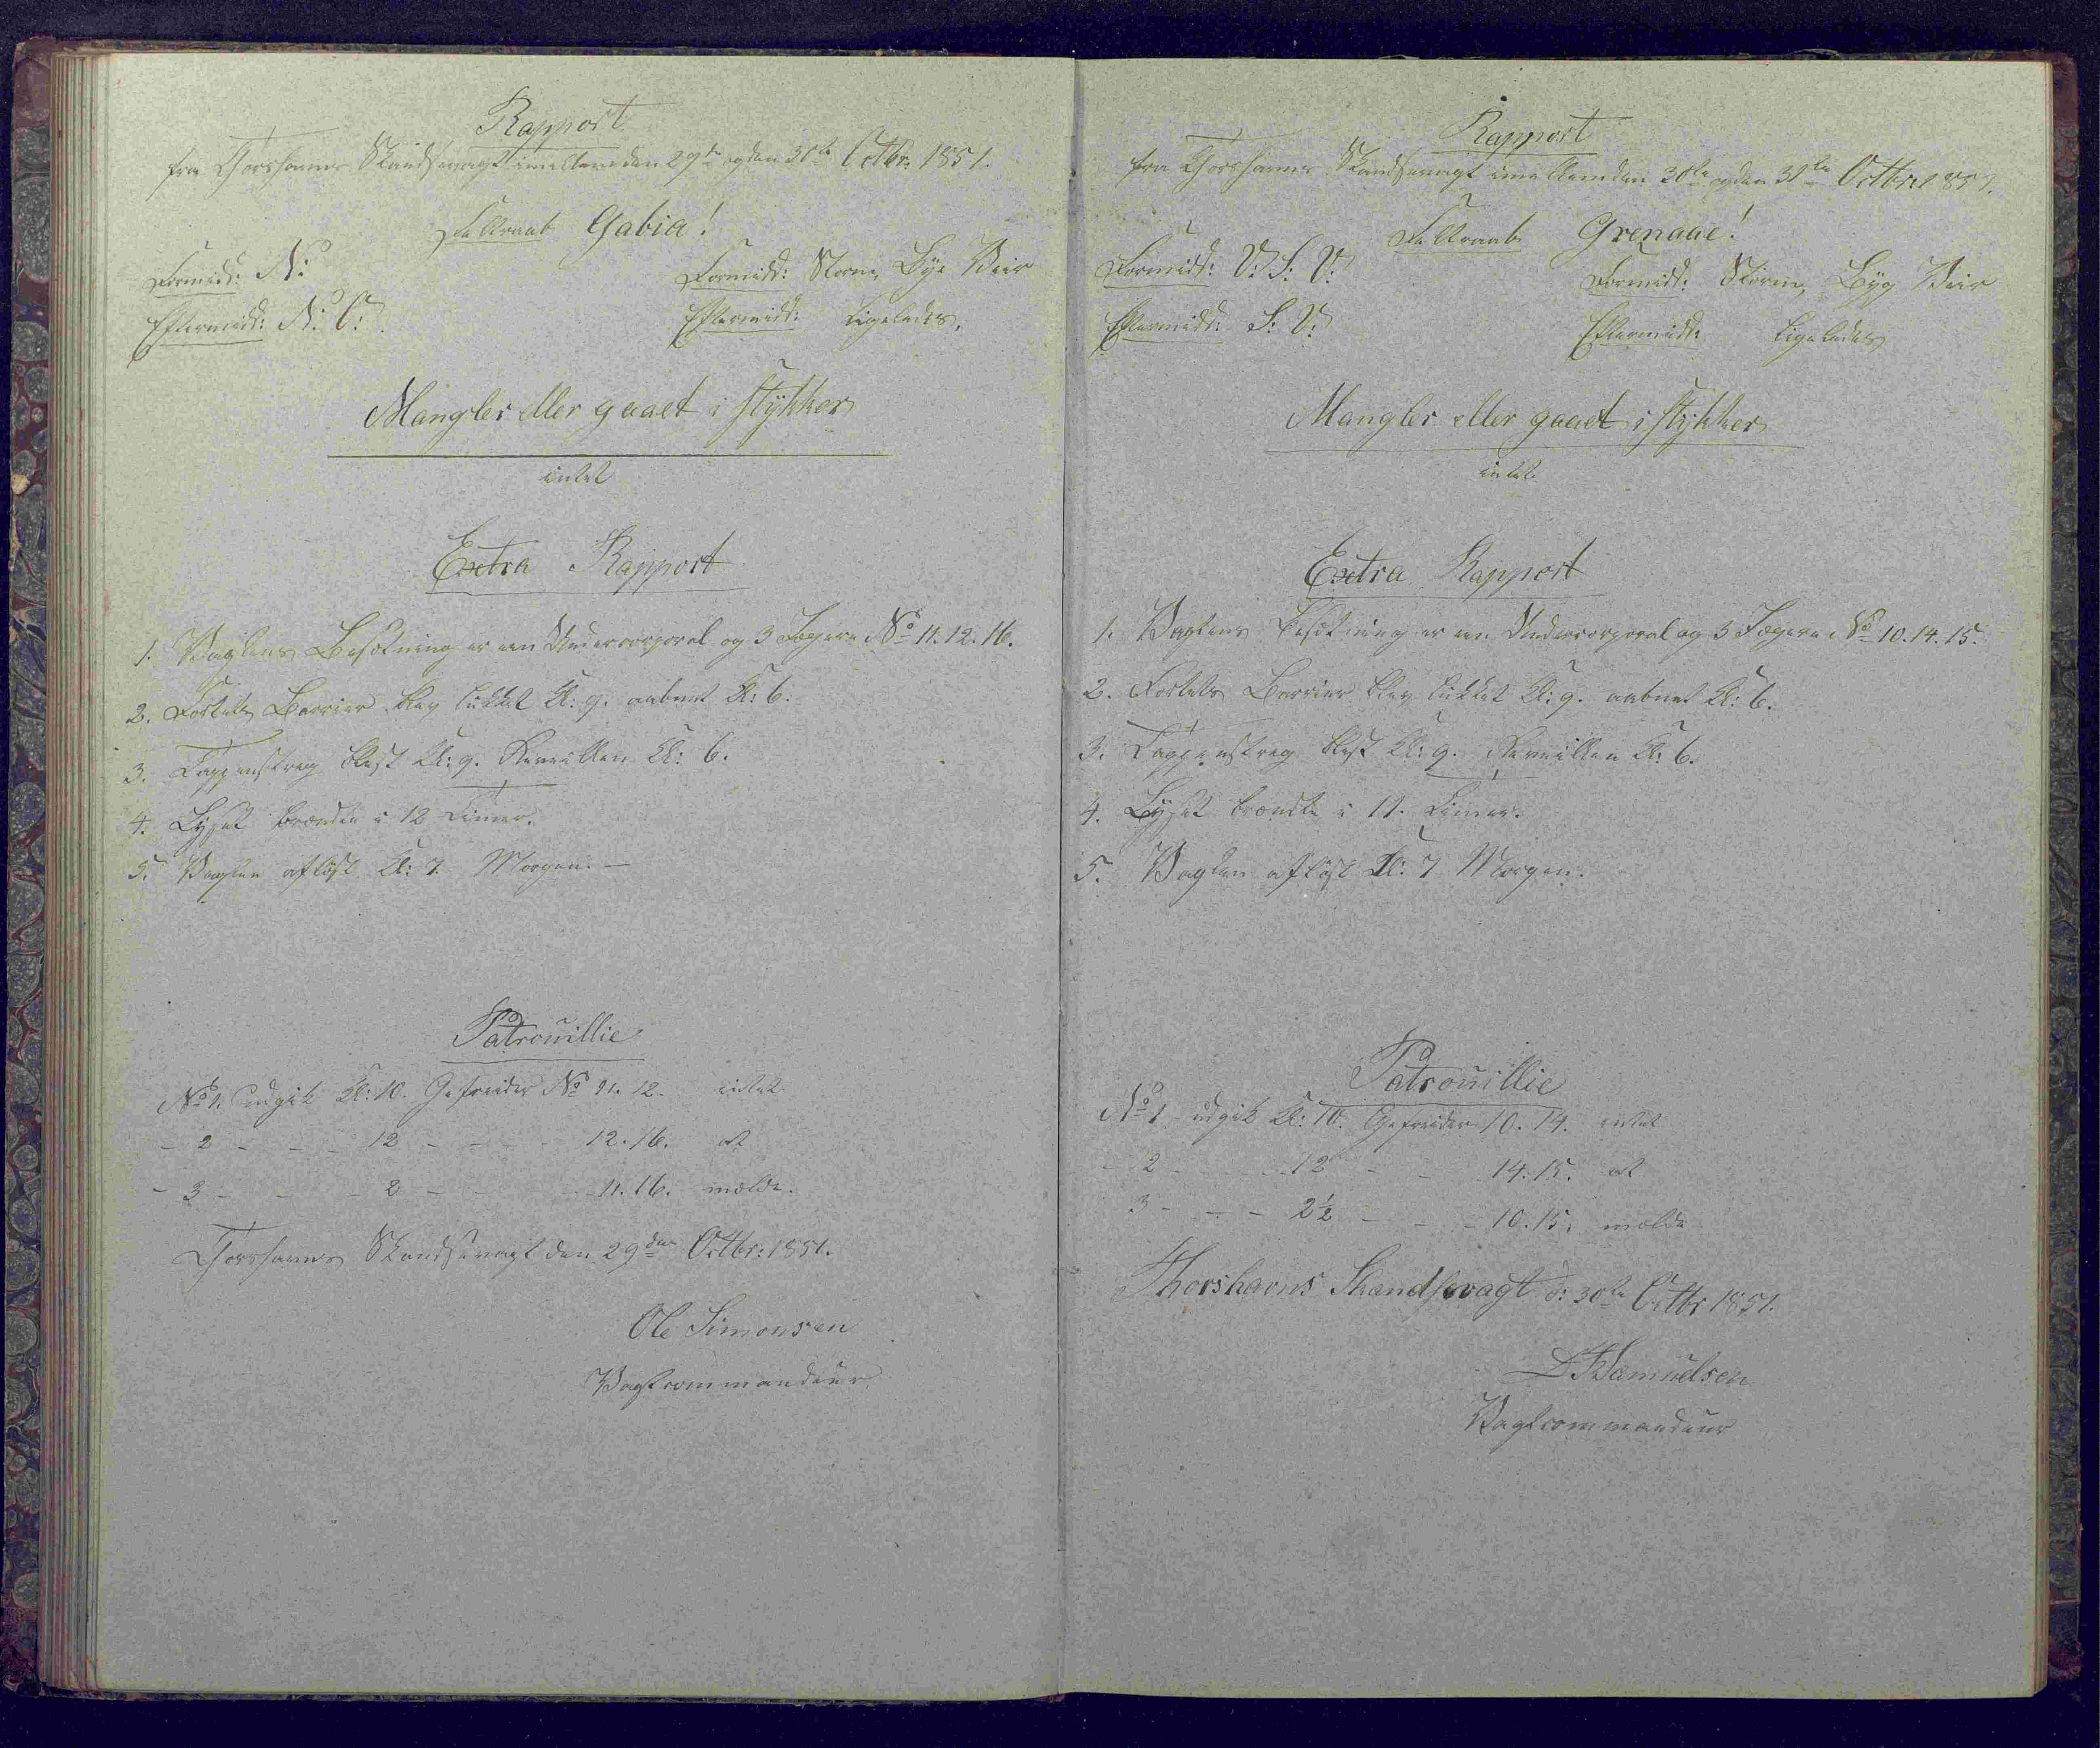 Rapport
fra Thorshavns Skandsevagt imellem den 29de og den 30te Octbr: 1851.
Feltraab Gabia!
Formidd: N:
Formidd: Storm, Bye Veir
Eftermidd: N: O:
Eftermidd: Ligeledes.
Mangler eller gaaet i stykker
intet
Extra Rapport
1. Vagtens Besætning er een Undercorporal og 3 Jægere No 11. 12. 16.
2. Fortets Barrier blev lukket Kl: 9. aabnet Kl: 6.
3. Tappenstreg blæst Kl: 9. Reveillen Kl: 6.
4. Lyset brændte i 12 Timer.
5. Vagten afløst Kl: 7 Morgen. —
Patrouillie
No 1. udgik Kl: 10. Gefreider No 11. 12. intet
- 2 - - - 12 - - - 12. 16. at
- 3 - - - 2 - - - 11. 16. melde.
Thorshavns Skandsevagt den 29den Octbr: 1851.
Ole Simonsen
Vagtcommandeur
Rapport
fra Thorshavns Skandsevagt imellem den 30te og den 31te Octbr 1851.
Feltraab Grenaae!
Formidd: V: S: V:
Formidd: Storm, Byg Veir
Eftermidd: S: V:
Eftermidd: Ligeledes
Mangler eller gaaet i stykker
intet
Extra Rapport
1. Vagtens Besætning er een Undercorporal og 3 Jægere No 10. 14. 15.
2. Fortets Barrier blev lukket Kl: 9. aabnet Kl: 6.
3. Tappenstreg blæst Kl: 9. Reveillen Kl: 6.
4. Lyset brændte i 11. Timer.
5. Vagten afløst Kl: 7 Morgen.
Patrouillie
No 1 udgik Kl: 10. Gefreider 10. 14. intet
- 2 - - - 12 - - 14. 15. at
3 - - - 2½ - - - 10. 15. melde
Thorshavns Skandsevagt d: 30te Octbr 1851.
Samuelsen
Vagtcommandeur